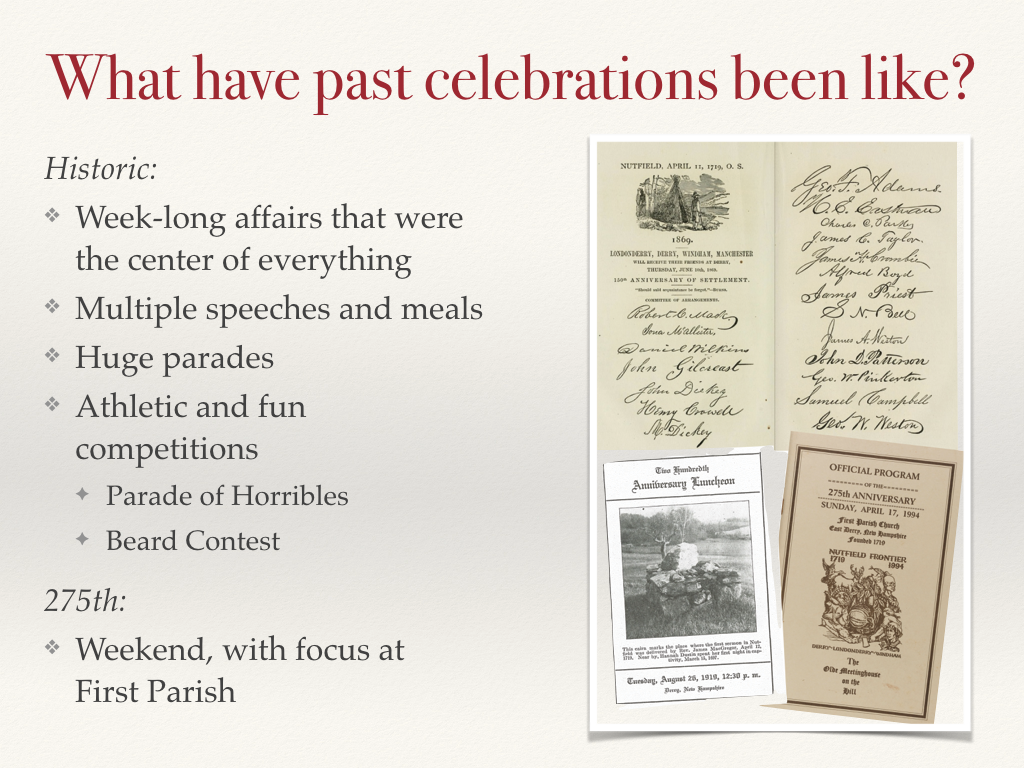 What have past celebrations been like?
Historic:
Week-long affairs that were
the center of everything
Multiple speeches and meals
Huge parades
Athletic and fun
competitions
Parade of Horribles
Beard Contest
275th:
Weekend, with focus at
First Parish
NUTFIELD, APRIL 11, 1719, O. S.
1869.
LONDONDERRY, DERRY, WINDHAM, MANCHESTER
WILL RECEIVE THEIR FRIENDS AT DERRY,
THURSDAY, JUNE 10th, 1869.
150th ANNIVERSARY OF SETTLEMENT.
"Should auld acquaintance be forgot."—Burns.
COMMITTEE OF ARRANGEMENTS.
Robert C. Mack,
Iona McAllister,
Daniel Wilkins
John Gilcreast
John Dickey
Henry Crowell
M. Dickey
Geo. F. Adams.
W. E. Eastman
Charles C. Parker
James C. Taylor.
James H. Crombie
Alfred Boyd
James Priest
S. N. Bell
James A. Weston
John D. Patterson
Geo. W. Pinkerton
Samuel Campbell
Geo. W. Weston
Two Hundredth
Anniversary Luncheon
This cairn marks the place where the first sermon in Nut-
field was delivered by Rev. James MacGregor, April 12,
1719. Near by, Hannah Dustin spent her first night in cap-
tivity, March 15, 1697.
Tuesday, August 26, 1919, 12:30 p. m.
Derry, New Hampshire
OFFICIAL PROGRAM
OF THE
275th ANNIVERSARY
SUNDAY, APRIL 17, 1994
First Parish Church
East Derry, New Hampshire
Founded 1719
NUTFIELD FRONTIER
1719 1994
DERRY~LONDONDERRY~WINDHAM
The
Olde Meetinghouse
on the
Hill